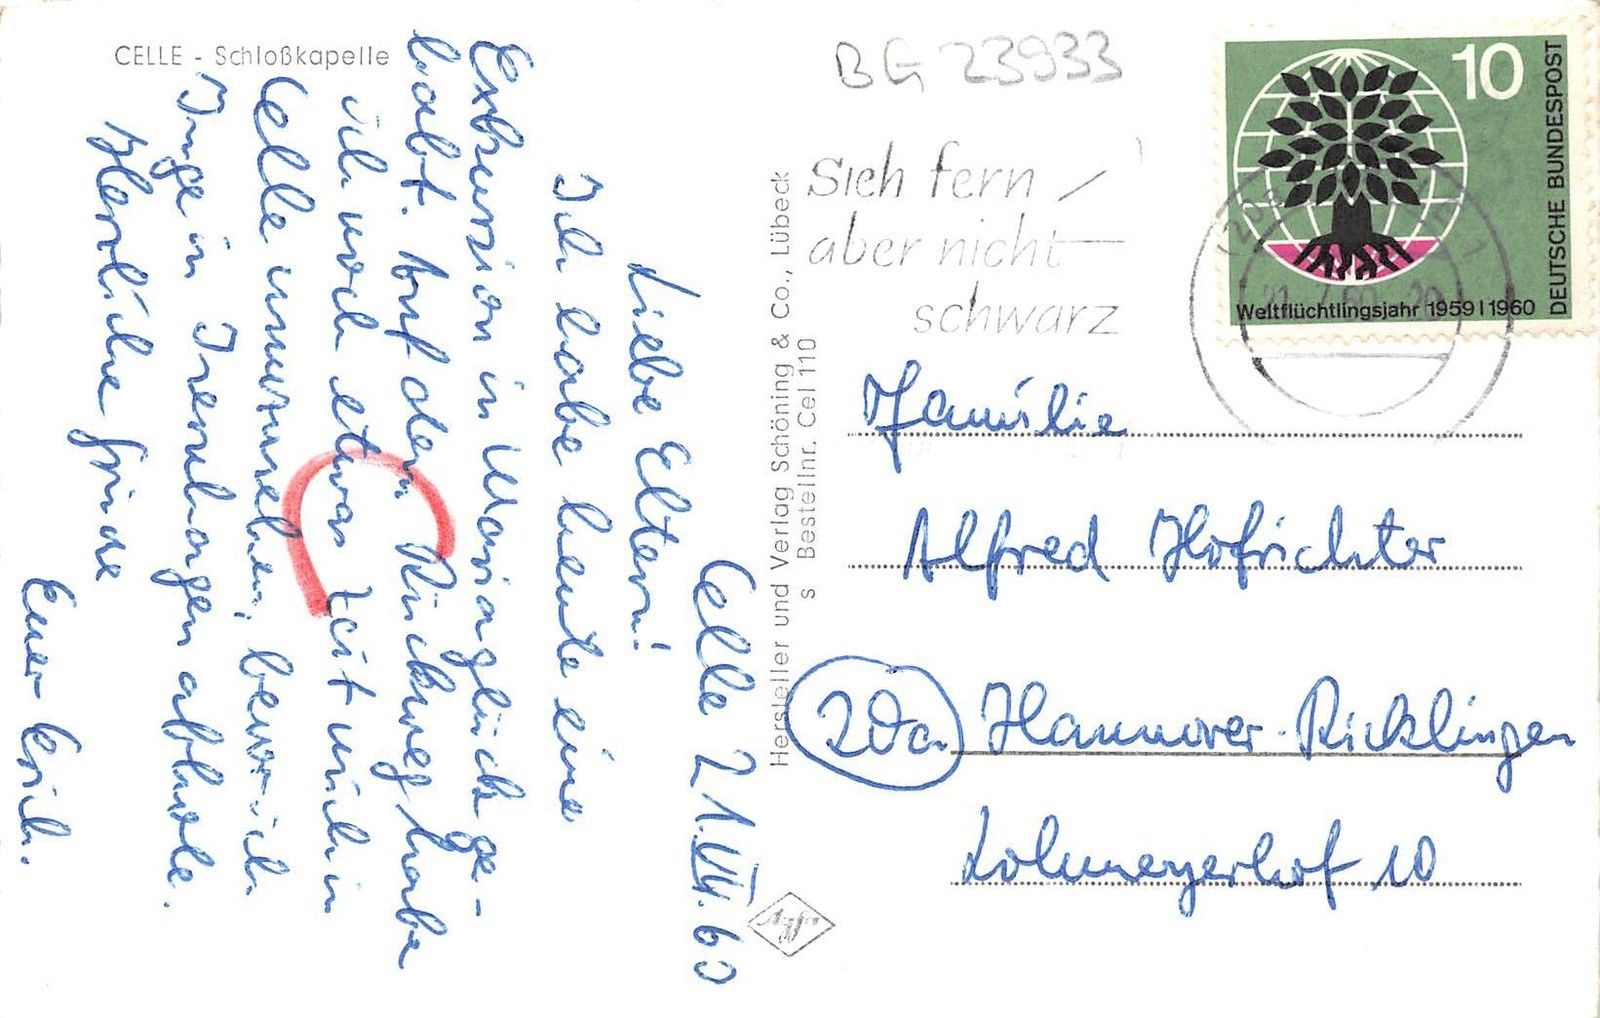 CELLE - Schloßkapelle
Celle 21.VII.60
Liebe Eltern!
Ich habe heute eine
Exkursion in Mariaglück ge-
habt. Auf dem Rückweg habe
ich noch etwas Zeit mich in
Celle umzusehen, bevor ich
Inge in Isernhagen abhole.
Herzliche Grüße
Euer Erich.
Hersteller und Verlag Schöning & Co., Lübeck
s Bestellnr. Cel 110
Agfa
BG 23933
Sieh fern
aber nicht
schwarz
10
DEUTSCHE BUNDESPOST
Weltflüchtlingsjahr 1959 | 1960
Familie
Alfred Hofrichter
20a Hannover-Ricklingen
Lohmeyerhof 10